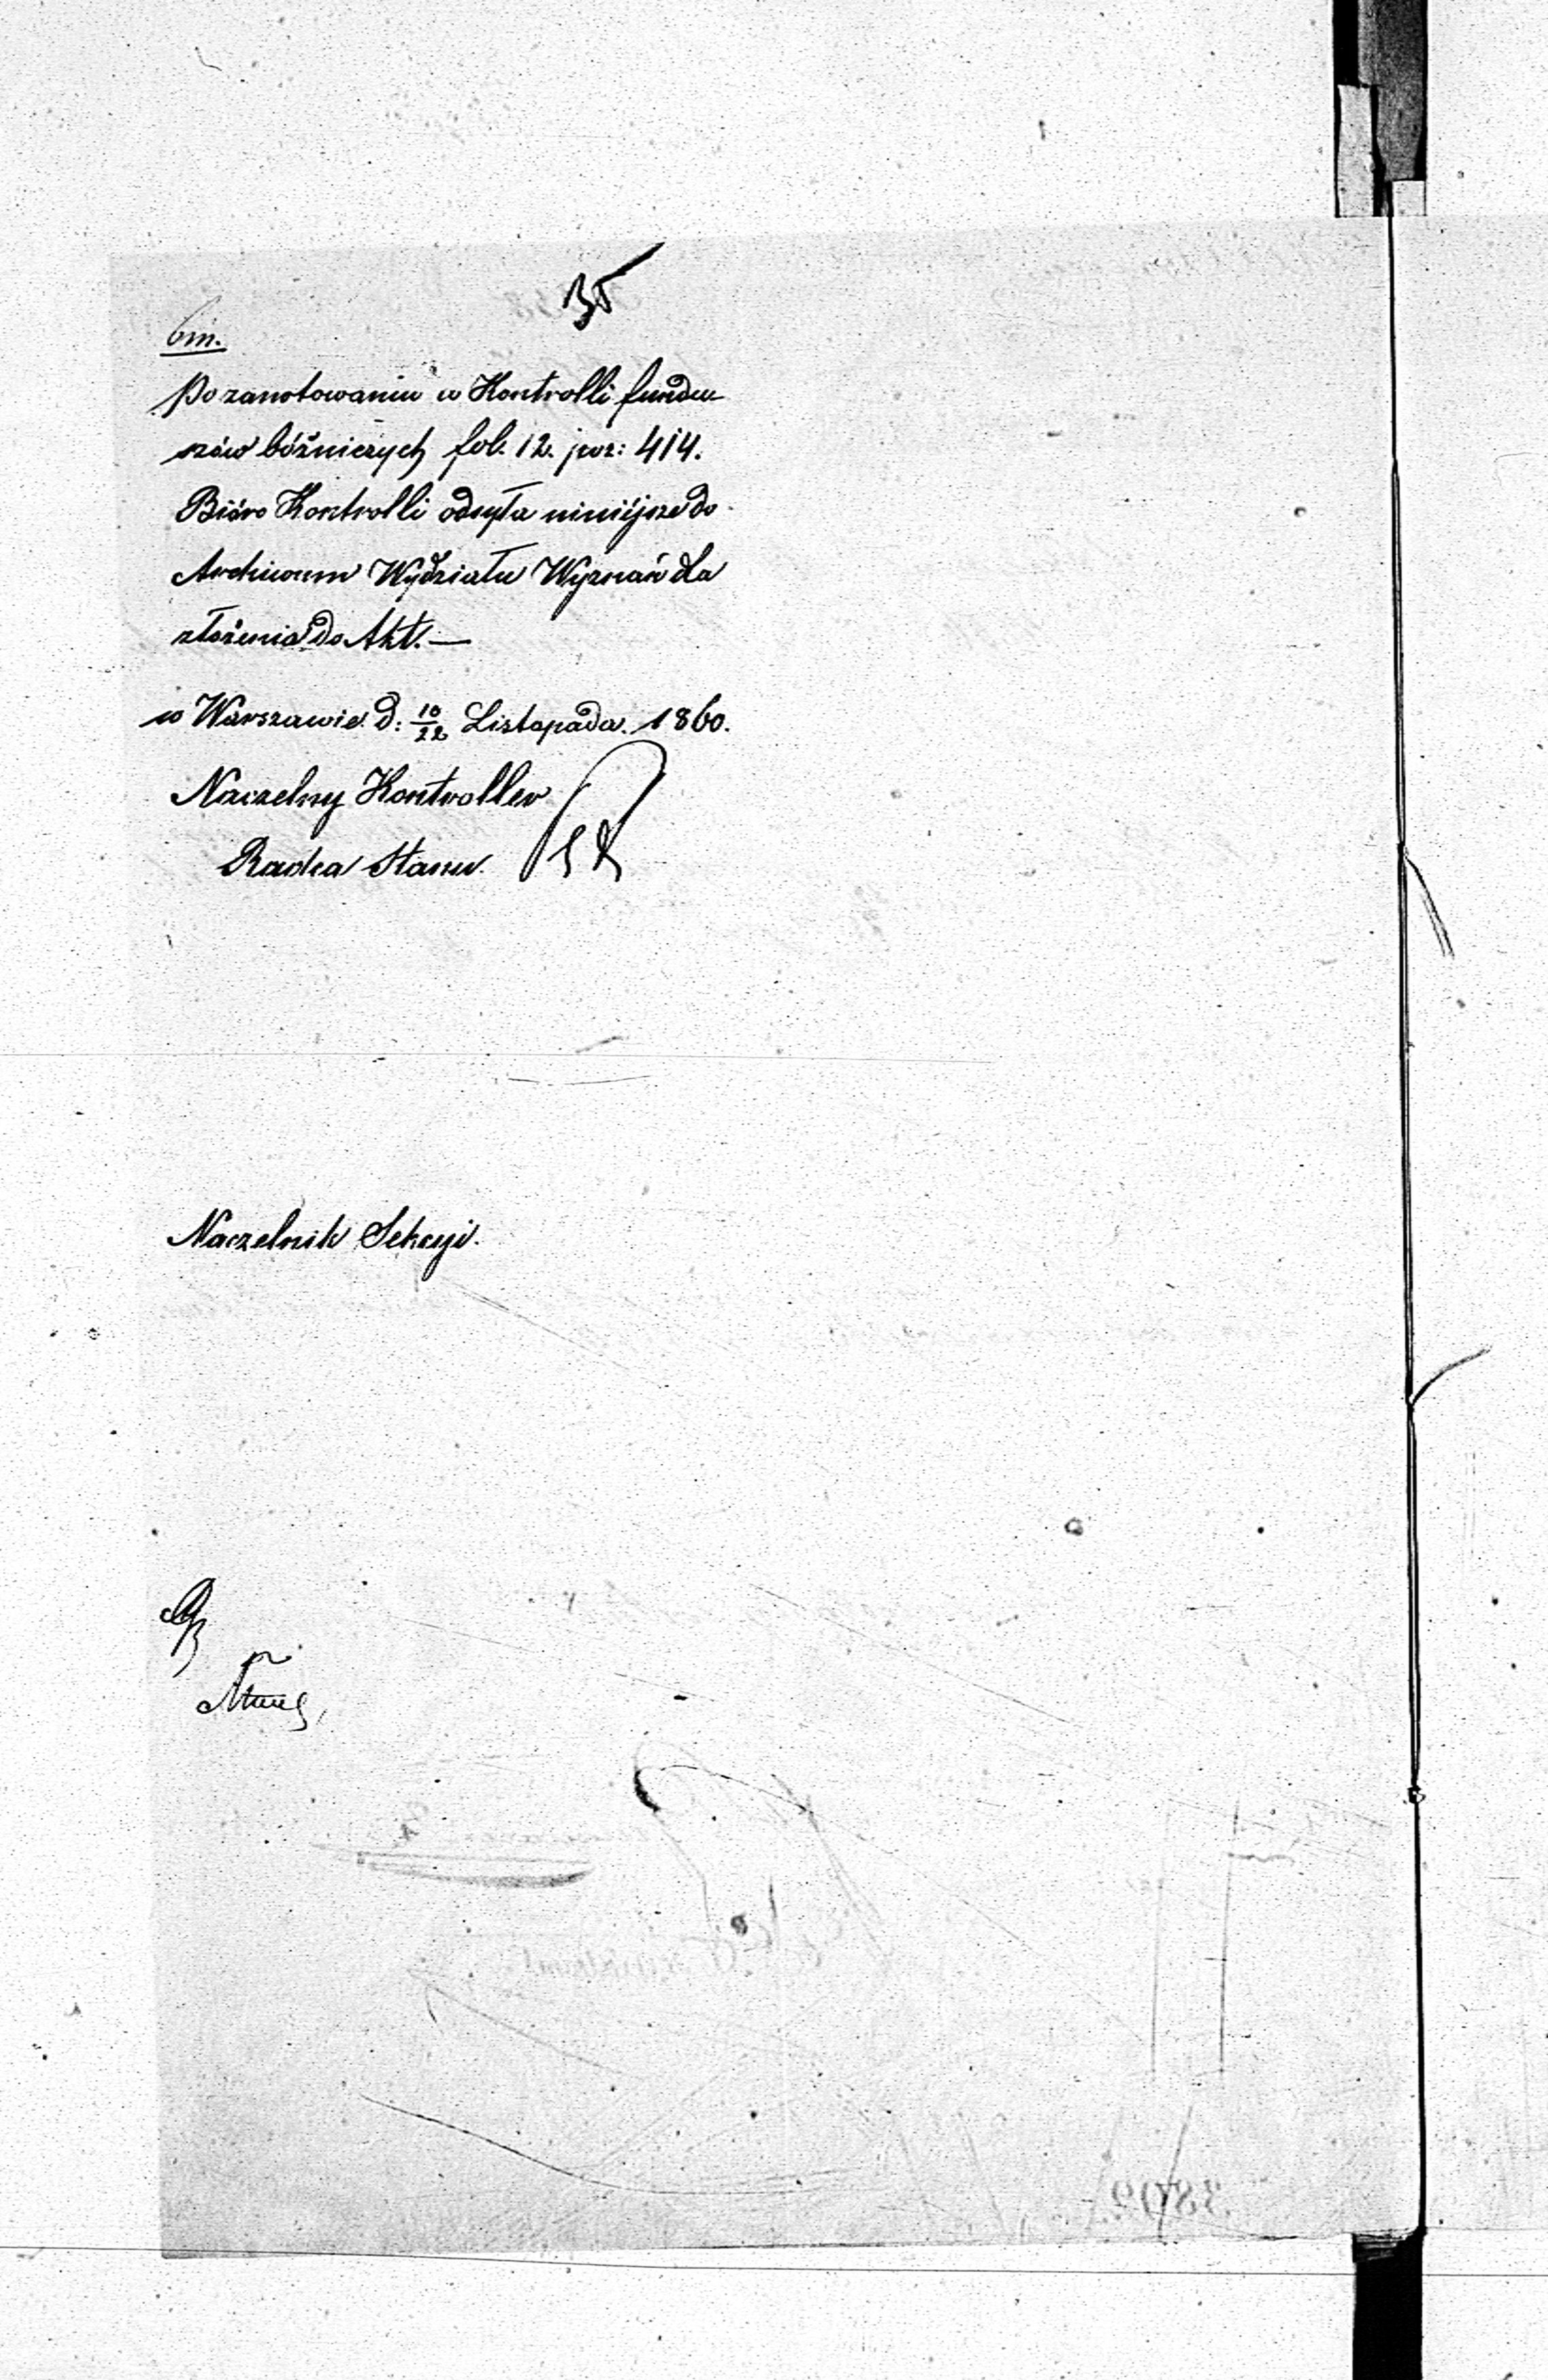 35
Bm.
Po zanotowaniu w Kontrolli fundu
szów bóżniczych fol. 12. poz: 414.
Bióro Kontrolli odsyła niniéjsze do
Archiwum Wydziału Wyznań dla
złożenia do Akt. —
w Warszawie d: 10/22 Listopada. 1860.
Naczelny Kontroller
Radca Stanu.
Naczelnik Sekcyi.